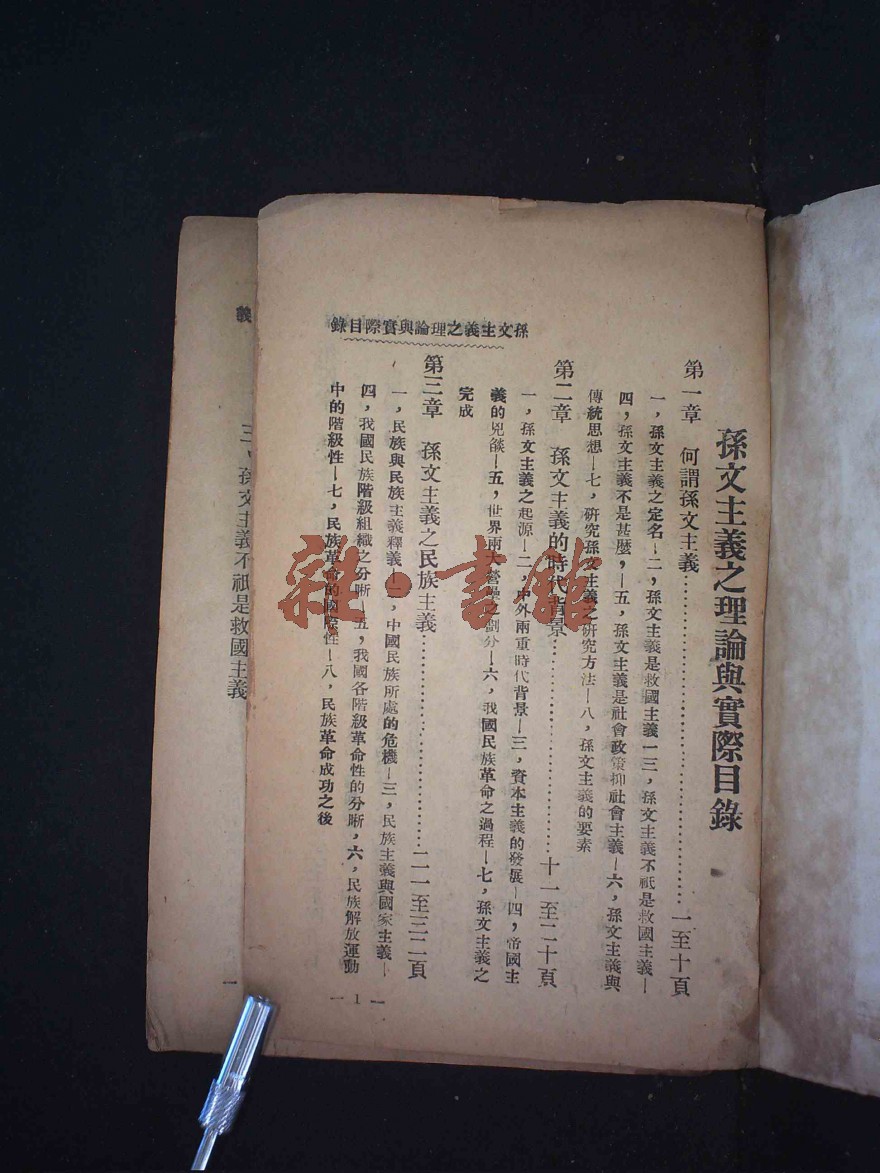 孫文主義之理論與實際目錄
第一章　何謂孫文主義……………………一至十頁
一，孫文主義之定名—二，孫文主義是救國主義—三，孫文主義不祇是救國主義—
四，孫文主義不是甚麼，—五，孫文主義是社會政策抑社會主義—六，孫文主義與
傳統思想—七，研究孫文主義之研究方法—八，孫文主義的要素
第二章　孫文主義的時代背景……………………十一至二十頁
一，孫文主義之起源—二，中外兩重時代背景—三，資本主義的發展—四，帝國主
義的兇燄—五，世界兩大營壘之劃分—六，我國民族革命之過程—七，孫文主義之
完成
第三章　孫文主義之民族主義……………………二一至三二頁
一，民族與民族主義釋義—二，中國民族所處的危機—三，民族主義與國家主義—
四，我國民族階級組織之分晰—五，我國各階級革命性的分晰，六，民族解放運動
中的階級性—七，民族革命的國際性—八，民族革命成功之後
孫文主義之理論與實際目錄
— 1 —
義
三，孫文主義不祇是救國主義
雜·書館